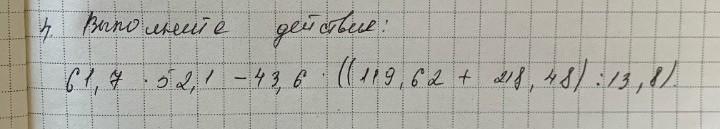 4. Выполните действие:
61,7 · 52,1 - 43,6 · ((119,62 + 218,48) : 13,8).